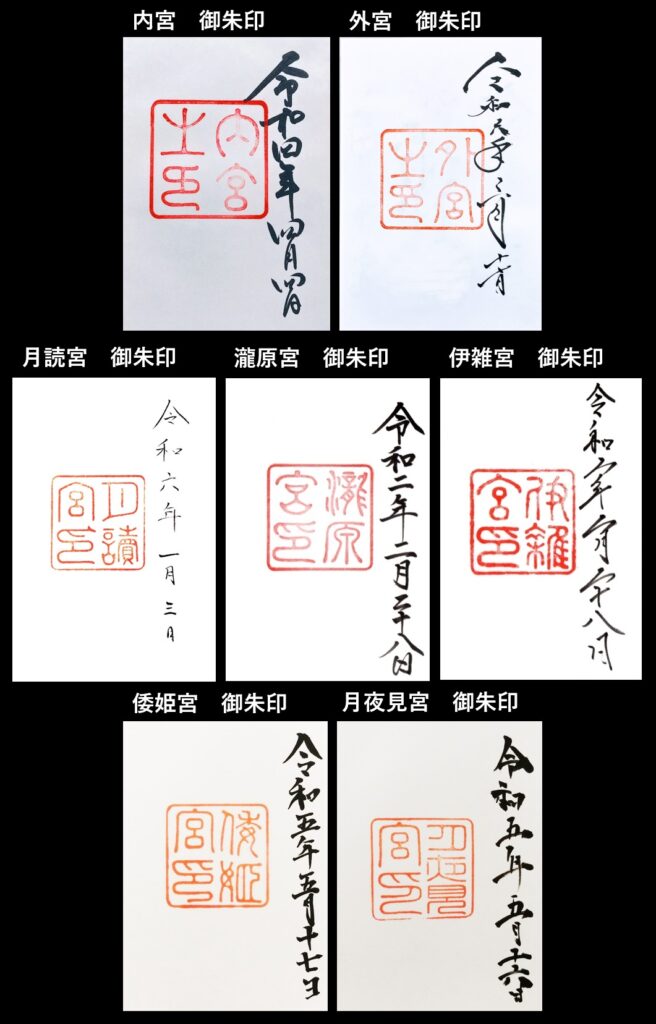 内宮　御朱印
令和四年四月四日
内宮
之印
外宮　御朱印
令和
外宮
之印
月読宮　御朱印
令和六年一月三日
月讀
宮印
瀧原宮　御朱印
令和二年二月二十八日
瀧原
宮印
伊雑宮　御朱印
令和二年二月二十八日
伊雜
宮印
倭姫宮　御朱印
令和五年五月十七日
倭姫
宮印
月夜見宮　御朱印
令和五年五月十六日
月夜見
宮印